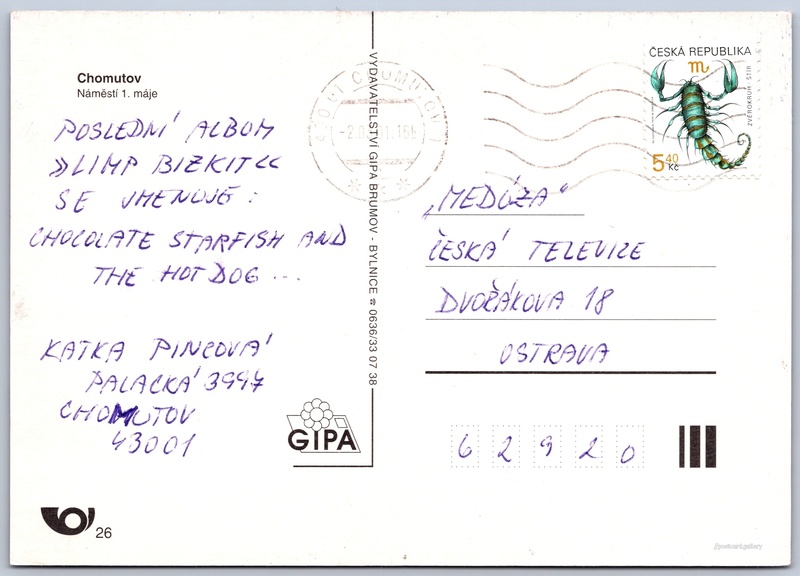 Chomutov
Náměstí 1. máje
POSLEDNÍ ALBUM
»LIMP BIZKIT«
SE JMENUJE:
CHOCOLATE STARFISH AND
THE HOT DOG ...
KATKA PINCOVÁ
PALACKÁ 3997
CHOMUTOV
43001
GIPA
26
VYDAVATELSTVÍ GIPA BRUMOV - BYLNICE ☎ 0636/33 07 38
CHOMUTOV
ČESKÁ REPUBLIKA
ZVĚROKRUH - ŠTÍR
5,40
Kč
„MEDÚZA"
ČESKÁ TELEVIZE
DVOŘÁKOVA 18
OSTRAVA
62920